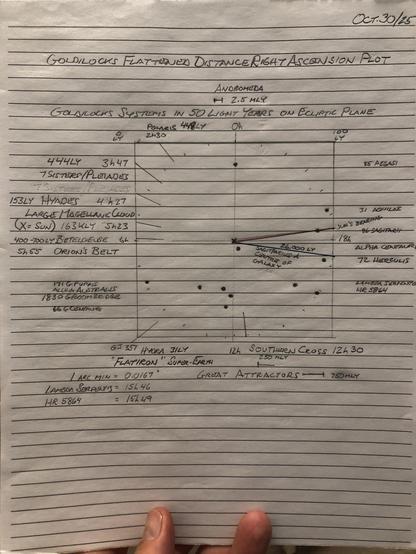 OCT 30/25
GOLDILOCKS FLATTENED DISTANCE RIGHT ASCENSION PLOT
ANDROMEDA
2.5 MLY
GOLDILOCKS SYSTEMS IN 50 LIGHT YEARS ON ECLIPTIC PLANE
0 LY
POLARIS 448LY
2h30
0h
100 LY
444LY 3h47
7 SISTERS/PLEIADES
85 PEGASI
7 SISTERS/PLEIADES
153LY HYADES 4h27
LARGE MAGELLANIC CLOUD
31 AQUILAE
(X=SUN) 163KLY 5h23
400-700LY BETELGEUSE 6h
18h
26,000 LY
SAGITTARIUS A
CENTRE OF GALAXY
5h55 ORION'S BELT
ALPHA CENTAURI
72 HERCULIS
HR 5864
1830 GROOMBRIDGE
HYDRA
12h
SOUTHERN CROSS 12h30
"FLATIRON" SUPER-EARTH
250 MLY
GREAT ATTRACTORS
1 ARC MIN = 0.0167°
LAMBDA SERPENTIS = 15h46
HR 5864 = 15h49